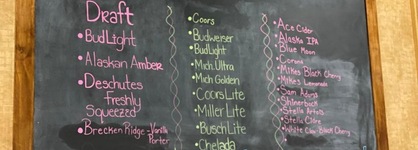 Draft
Bud Light
Alaskan Amber
Deschutes
freshly
Squeezed
Brecken Ridge - Vanilla
Porter
Coors
Budweiser
Bud Light
Mich. Ultra
Mich Golden
Coors Lite
Miller Lite
Busch Lite
Chelada
Ace Cider
Alaska IPA
Blue Moon
Corona
Mikes Black Cherry
Mikes Lemonade
Sam Adams
Shinerbock
Stella Artois
White Claw Black Cherry